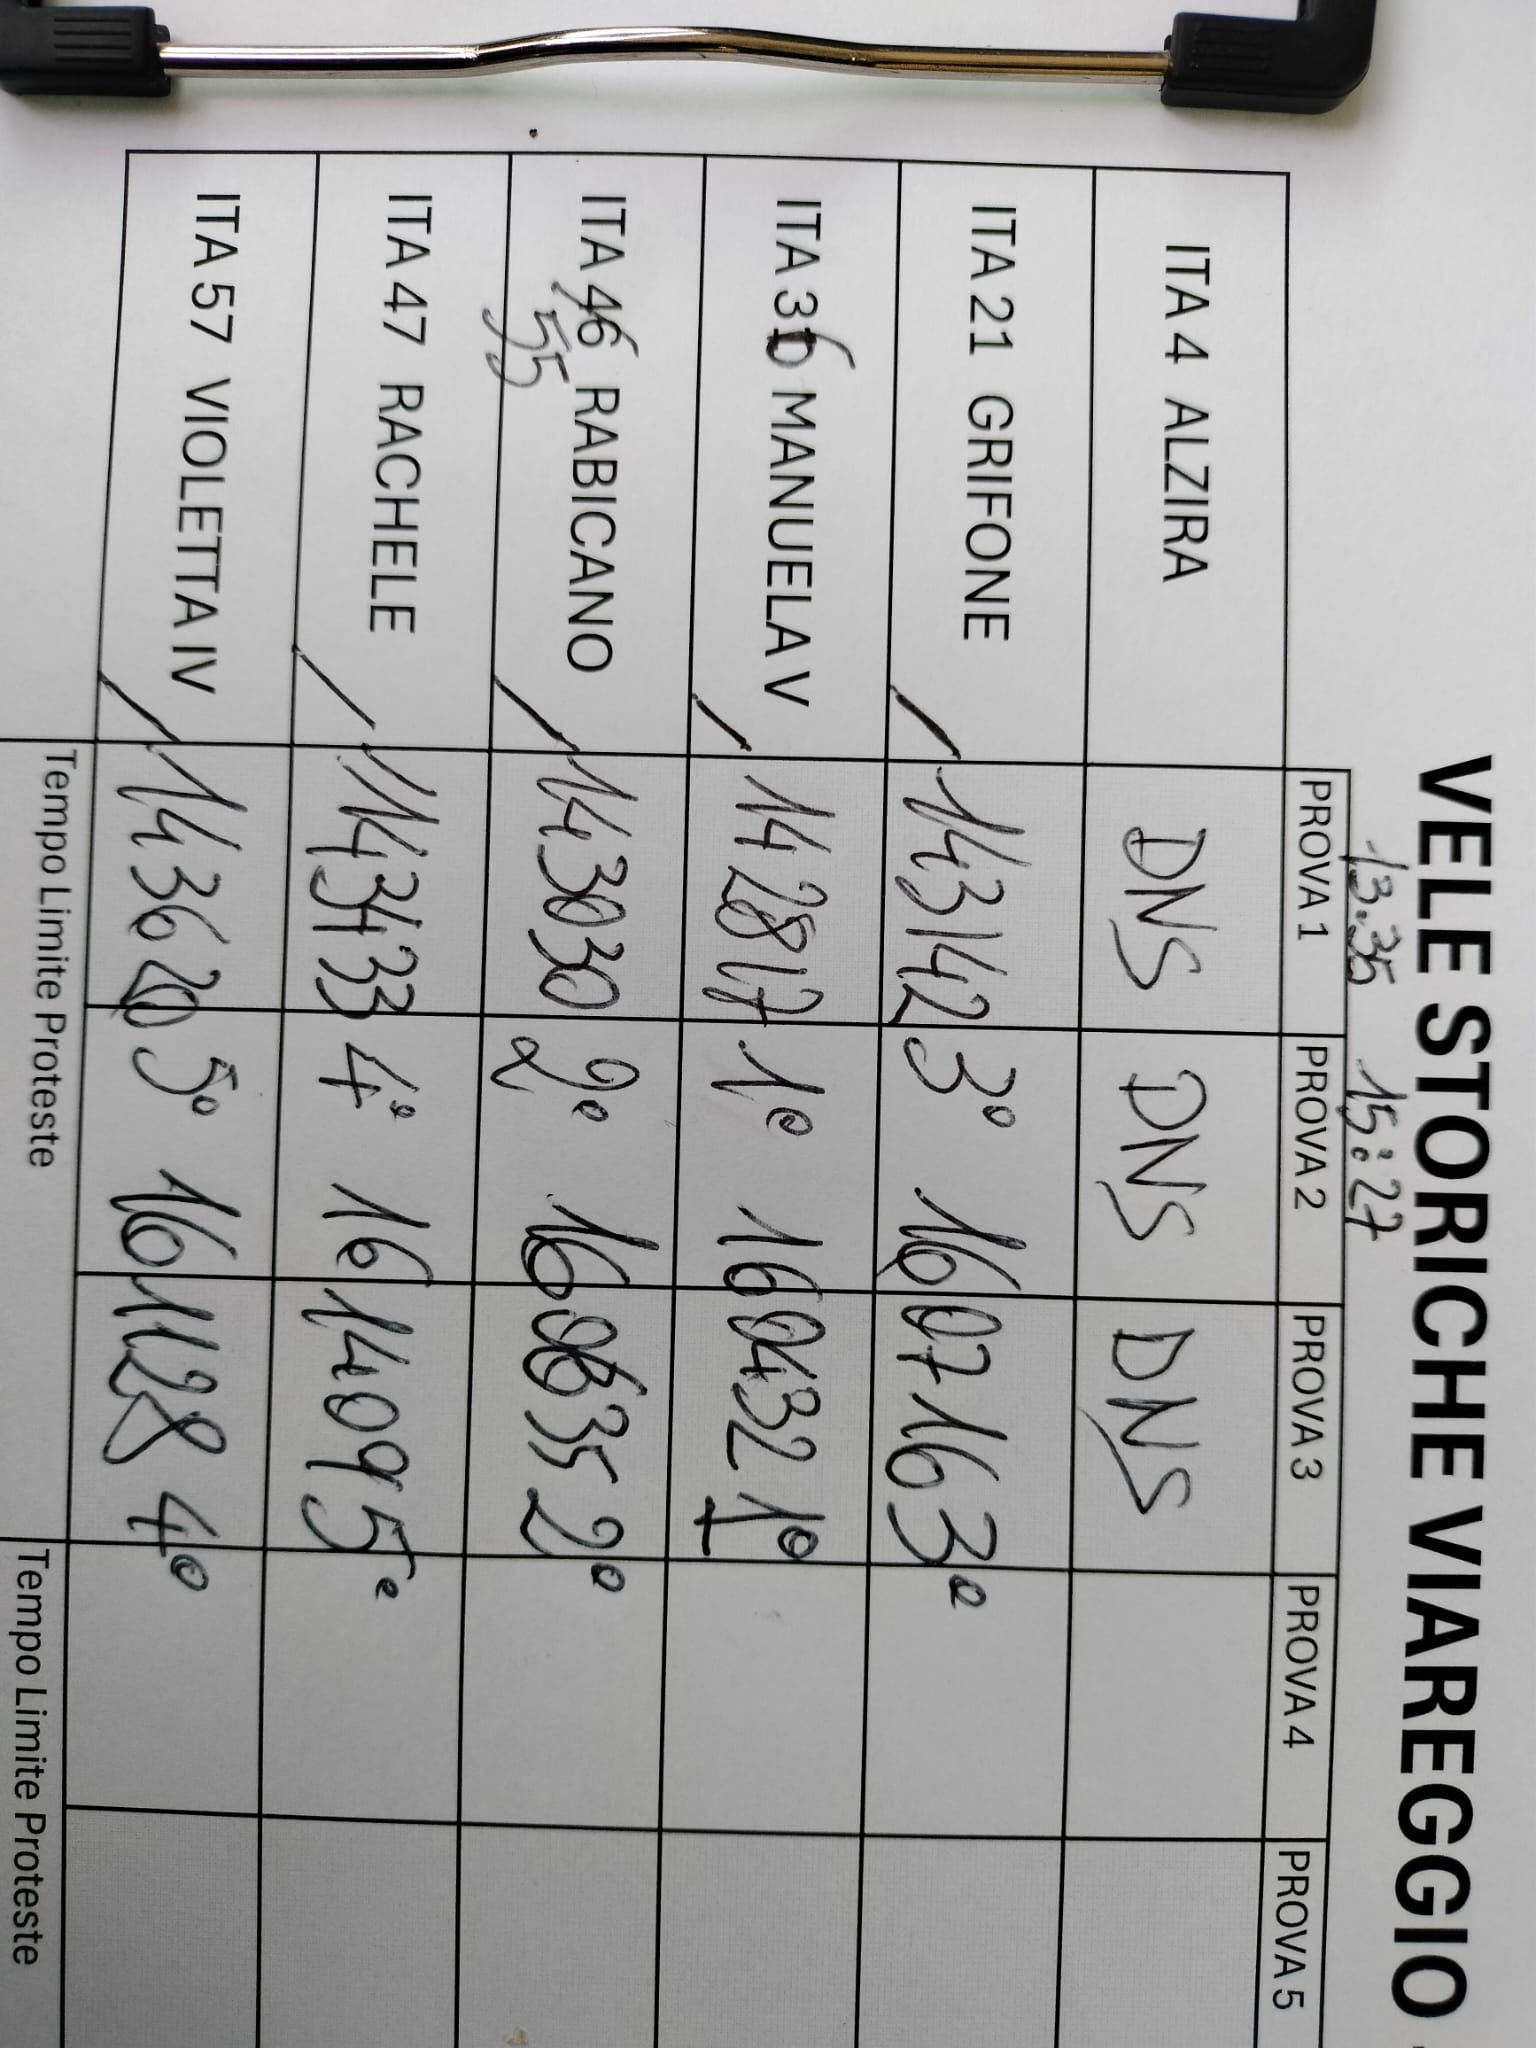 VELE STORICHE VIAREGGIO
13.35 15:27
PROVA 1 PROVA 2 PROVA 3 PROVA 4 PROVA 5
ITA 4 ALZIRA DNS DNS DNS
ITA 21 GRIFONE 143142 3° 160716 3°
ITA 36 MANUELA V 142817 1° 160432 1°
ITA 46 RABICANO 143030 2° 160635 2°
55 2
ITA 47 RACHELE 143433 4° 161409 5°
ITA 57 VIOLETTA IV 143620 5° 161128 4°
Tempo Limite Proteste Tempo Limite Proteste